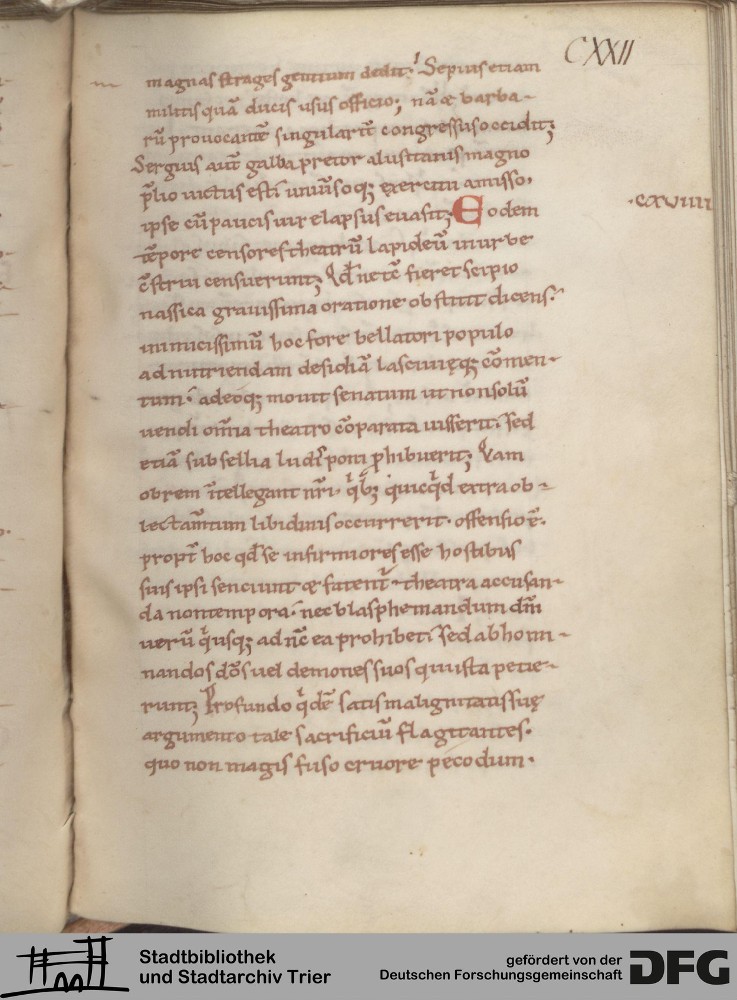 CXXII
magnas strages gentium dedit. Sepius etiam
militis quā ducis usus officio; nā & barba-
rū provocantē singularit̄ congressus occidit;
Sergius aut̄ galba pretor a lusitanis magno
p̄lio victus est; universoq; exercitu amisso.
ipse cū paucis vix elapsus evasit; Eodem
·cxviiii
tēpore censores theatrū lapideū in urbe
c̄strui censuerunt; Qd̄ ne tc̄ fieret scipio
nassica gravissima oratione obstitit dicens.
inimicissimū hoc fore bellatori populo
ad nutriendam desidiā lascivięq; cōmen-
tum. adeoq; movit senatum ut non solū
vendi om̄ia theatro cōparata iusserit. sed
etiā subsellia ludis poni phibuerit; Qam
obrem intellegant nr̄i. qib; quicqd extra ob-
lectam̄tum libidinis occurrerit. offensio ē.
propt̄ hoc qd̄ se infirmiores esse hostibus
suis ipsi senciunt & fatent̄ theatra accusan-
da non tempora. nec blasphemandum dm̄
verū qi usq; ad nc̄ ea prohibet. sed abhomi-
nandos d̄os vel demones suos qui ista petie-
runt; Profundo qidē satis malignitatis suę
argumento tale sacrificiū flagitantes.
quo non magis fuso cruore pecodum.
Stadtbibliothek
und Stadtarchiv Trier
gefördert von der
Deutschen Forschungsgemeinschaft
DFG